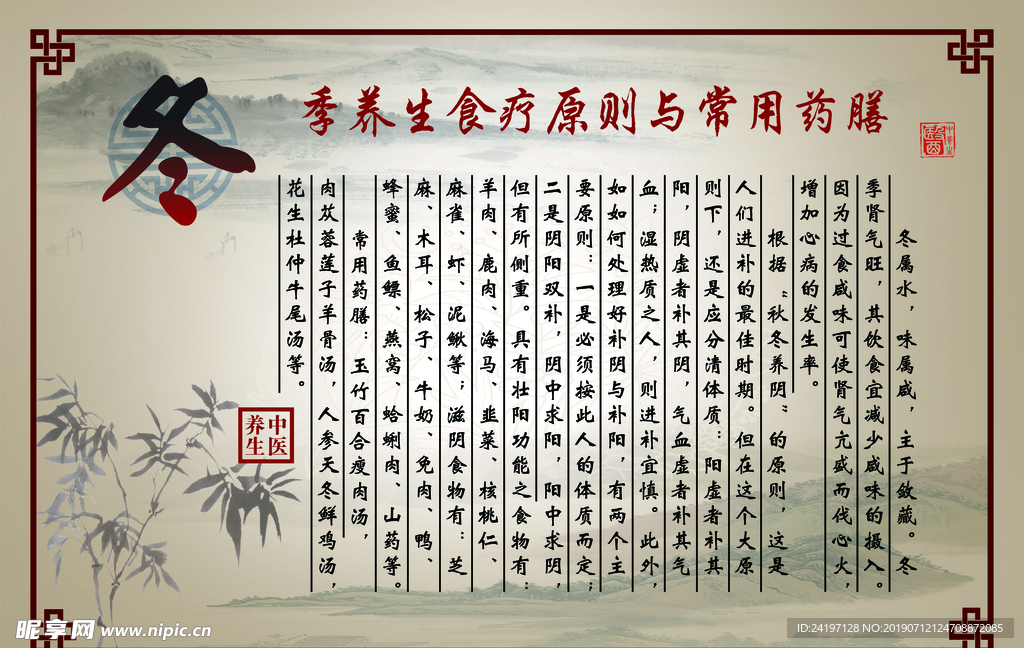 冬
季养生食疗原则与常用药膳
冬属水，味属咸，主于敛藏。冬
季肾气旺，其饮食宜减少咸味的摄入。
因为过食咸味可使肾气亢盛而伐心火，
增加心病的发生率。
根据“秋冬养阴”的原则，这是
人们进补的最佳时期。但在这个大原
则下，还是应分清体质：阳虚者补其
阳，阴虚者补其阴，气血虚者补其气
血；湿热质之人，则进补宜慎。此外，
如如何处理好补阴与补阳，有两个主
要原则：一是必须按此人的体质而定；
二是阴阳双补，阴中求阳，阳中求阴，
但有所侧重。具有壮阳功能之食物有：
羊肉、鹿肉、海马、韭菜、核桃仁、
麻雀、虾、泥鳅等；滋阴食物有：芝
麻、木耳、松子、牛奶、免肉、鸭、
蜂蜜、鱼鳔、燕窝、蛤蜊肉、山药等。
常用药膳：玉竹百合瘦肉汤，
肉苁蓉莲子羊骨汤，人参天冬鲜鸡汤，
花生杜仲牛尾汤等。
中医
养生
昵享网 www.nipic.cn
ID:24197128 NO:20190712124708872085